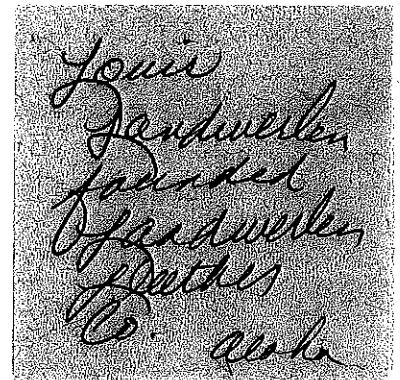 Louis
Landwerlen
founded
Landwerlen
Leather
Co.
Aloha